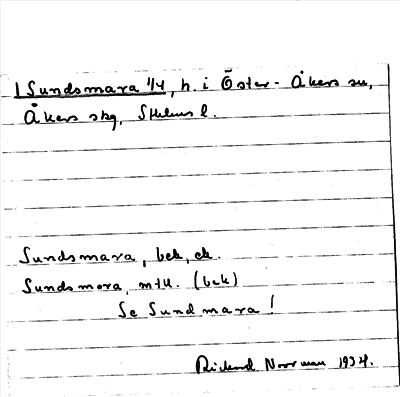 1 Sundsmara 1/4, h. i Öster-Åkers sn,
Åkers skg, Sthlms l.
Sundsmara, bek, ek.
Sundsmora, mtl. (bek)
Se Sundmara!
Rickard Norrman 1934.